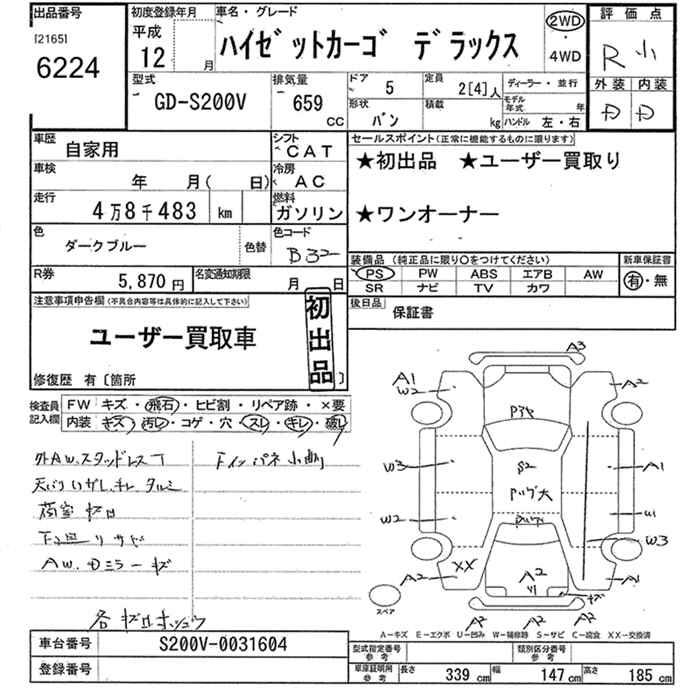 出品番号
[2165]
6224
初度登録年月
平成
12 月
車名・グレード
ハイゼットカーゴ デラックス
2WD
・
4WD
評価点
R 小
外装 内装
D D
型式
GD-S200V
排気量
659 CC
ドア 5
定員 2[4]人
ディーラー・並行
形状 バン
積載 kg
モデル年式 年
ハンドル 左・右
車歴 自家用
シフト CAT
車検 年 月( 日)
冷房 AC
走行 4万8千483 km
燃料 ガソリン
色 ダークブルー 色替
色コード B32
R券 5,870円
名変通知期限 月 日
セールスポイント(正常に機能するものに限ります)
★初出品 ★ユーザー買取り
★ワンオーナー
装備品 (純正品に限り○をつけてください)
新車保証書
PS PW ABS エアB AW
有・無
SR ナビ TV カワ
後日品 保証書
注意事項申告欄(不具合内容等は具体的に記入して下さい)
ユーザー買取車
初出品
修復歴 有〔箇所 〕
検査員記入欄
FW キズ・飛石・ヒビ割・リペア跡・×要
内装 キズ・汚レ・コゲ・穴・スレ・キレ・破レ
外AW.スタッドレス
荷室 キロ
AW.Dミラーキズ
A3
A1
W2
A2
P3ヤ
W3
S2
A1
Pツグ大
W2
W3
XX
A2
A2
A1
キズ
A2
A2
A2
スペア
A-キズ E-エクボ U-凹み W-補修跡 S-サビ C-腐食 XX-交換済
車台番号 S200V-0031604
登録番号
型式指定番号 参考
類別区分番号 参考
車庫証明用 参考
長さ 339 cm 幅 147 cm 高さ 185 cm